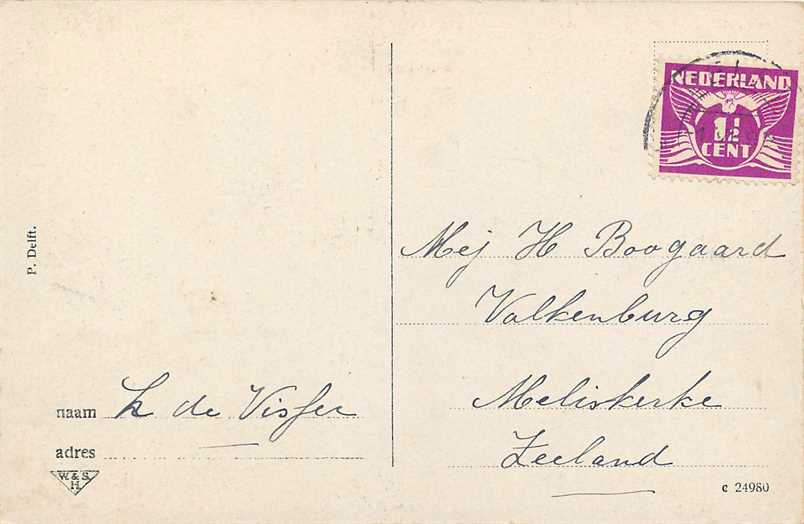 NEDERLAND
1½
CENT
Mej H Boogaard
Valkenburg
Meliskerke
Zeeland
P. Delft.
naam L de Visser
adres
W. & S.
H.
c 24980